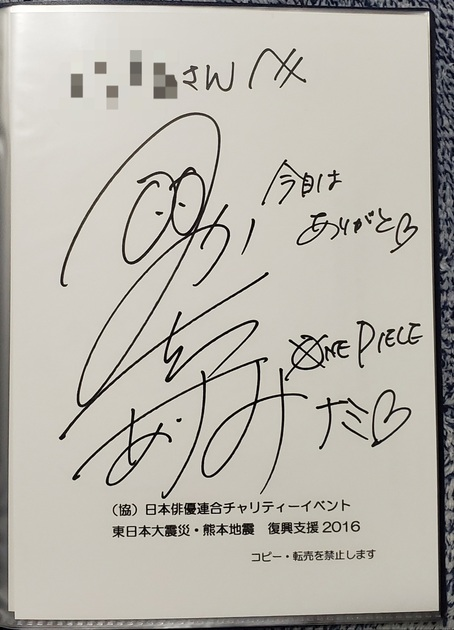 さんへ
今日は
ありがと♡
ONE PIECE
ナミ♡
(協)日本俳優連合チャリティーイベント
東日本大震災・熊本地震 復興支援2016
コピー・転売を禁止します